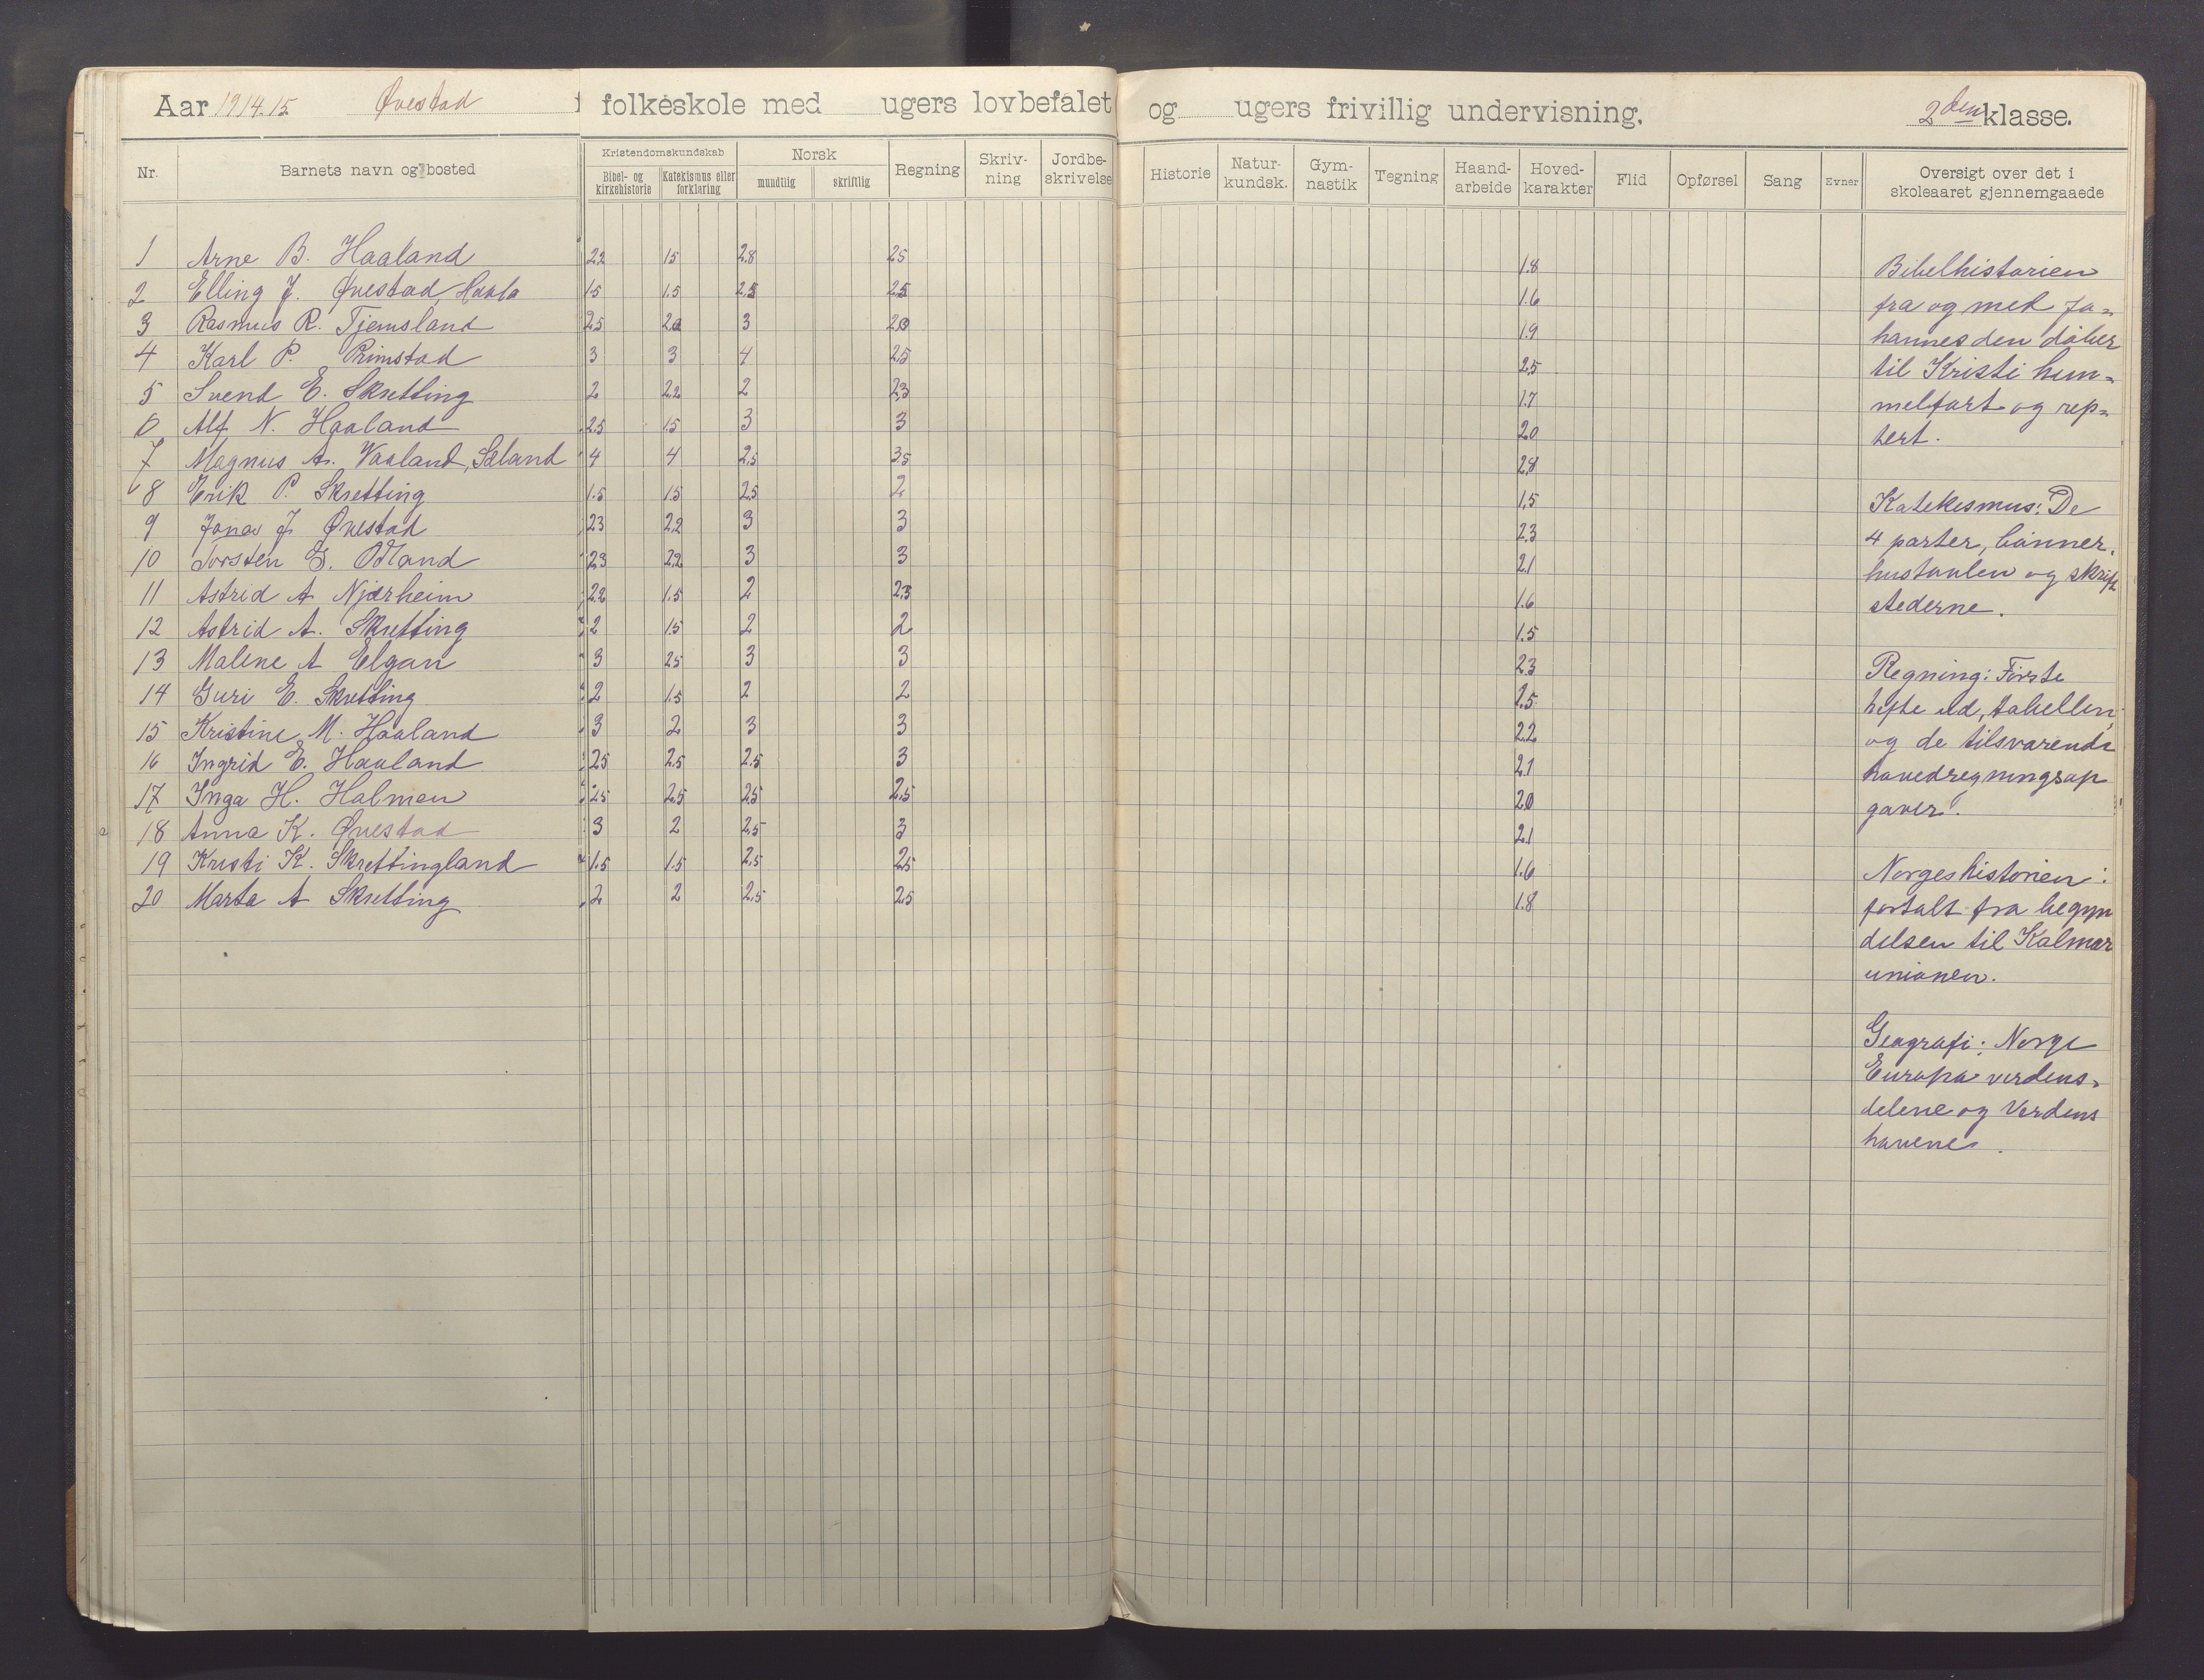 Aar 1914.15 Øvestad folkeskole med ugers lovbefalet og ugers frivillig undervisning. 2den klasse.
Nr. Barnets navn og bosted Kristendomskundskab Bibel- og kirkehistorie Katekismus eller forklaring Norsk mundtlig skriftlig Regning Skriv-ning Jordbe-skrivelse Historie Natur-kundsk. Gym-nastik Tegning Haand-arbeide Hoved-karakter Flid Opførsel Sang Evner Oversigt over det i skoleaaret gjennemgaaede
1 Arne B. Haaland 2.2 1.5 2.8 2.5 1.8
2 Elling J. Øvestad, 1.5 1.5 2.5 2.5 1.6
3 Rasmus R. Tjemsland 2.5 3 1.9
4 Karl P. Primstad 3 3 4 2.5 2.5
5 Svend E. Skretting 2 2.2 2 2.3 1.7
6 Alf N. Haaland 2.5 1.5 3 3 2.0
7 Magnus A. Vaaland, Sæland 4 4 2.5 3.5 2.8
8 Erik P. Skretting 1.5 1.5 2.5 2 1.5
9 Jonas J. Øvestad 2.3 2.2 3 3 2.3
10 Torsten G. Odland 2.3 2.2 3 3 2.1
11 Astrid A Njærheim 2.2 1.5 2 2.3 1.6
12 Astrid A. Skretting 2 1.5 2 2 1.5
13 Malene A Elgan 3 2.5 3 3 2.3
14 Guri E. Skretting 2 1.5 2 2 1.5
15 Kristine M. Haaland 3 2 3 3 2.2
16 Ingrid E. Haaland 2.5 2.5 2.5 3 2.1
17 Inga H. Holmen 2.5 2.5 2.5 2.5 2.0
18 Anna K. Øvestad 3 2 2.5 3 2.1
19 Kristi K. Skrettingland 1.5 1.5 2.5 2.5 1.6
20 Marta A Skretting 2 2 2.5 2.5 1.8
Bibelhistorien
fra og med Jo-
hannes den døber
til Kristi him-
melfart og rep-
tert.
Katekesmus: De
4 parter, bønner,
hustavlen og skrift
stederne.
Regning: Første
hefte ud, tabellen,
og de tilsvarende
hovedregningsop
gaver.
Norgeshistorien:
fortalt fra begyn
delsen til Kalmar
unionen.
Geografi: Norge
Europa verdens-
delene og Verdens
havene.